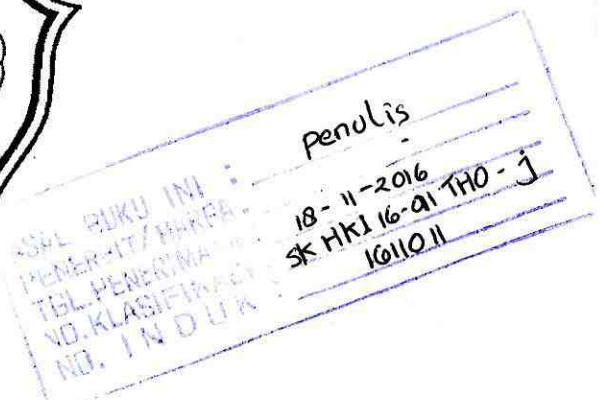 ASAL BUKU INI : Penulis
PENERBIT/HARGA : -
TGL. PENERIMAAN : 18-11-2016
NO. KLASIFIKASI : SK HKI 16-091 THO-j
NO. INDUK : 1611011